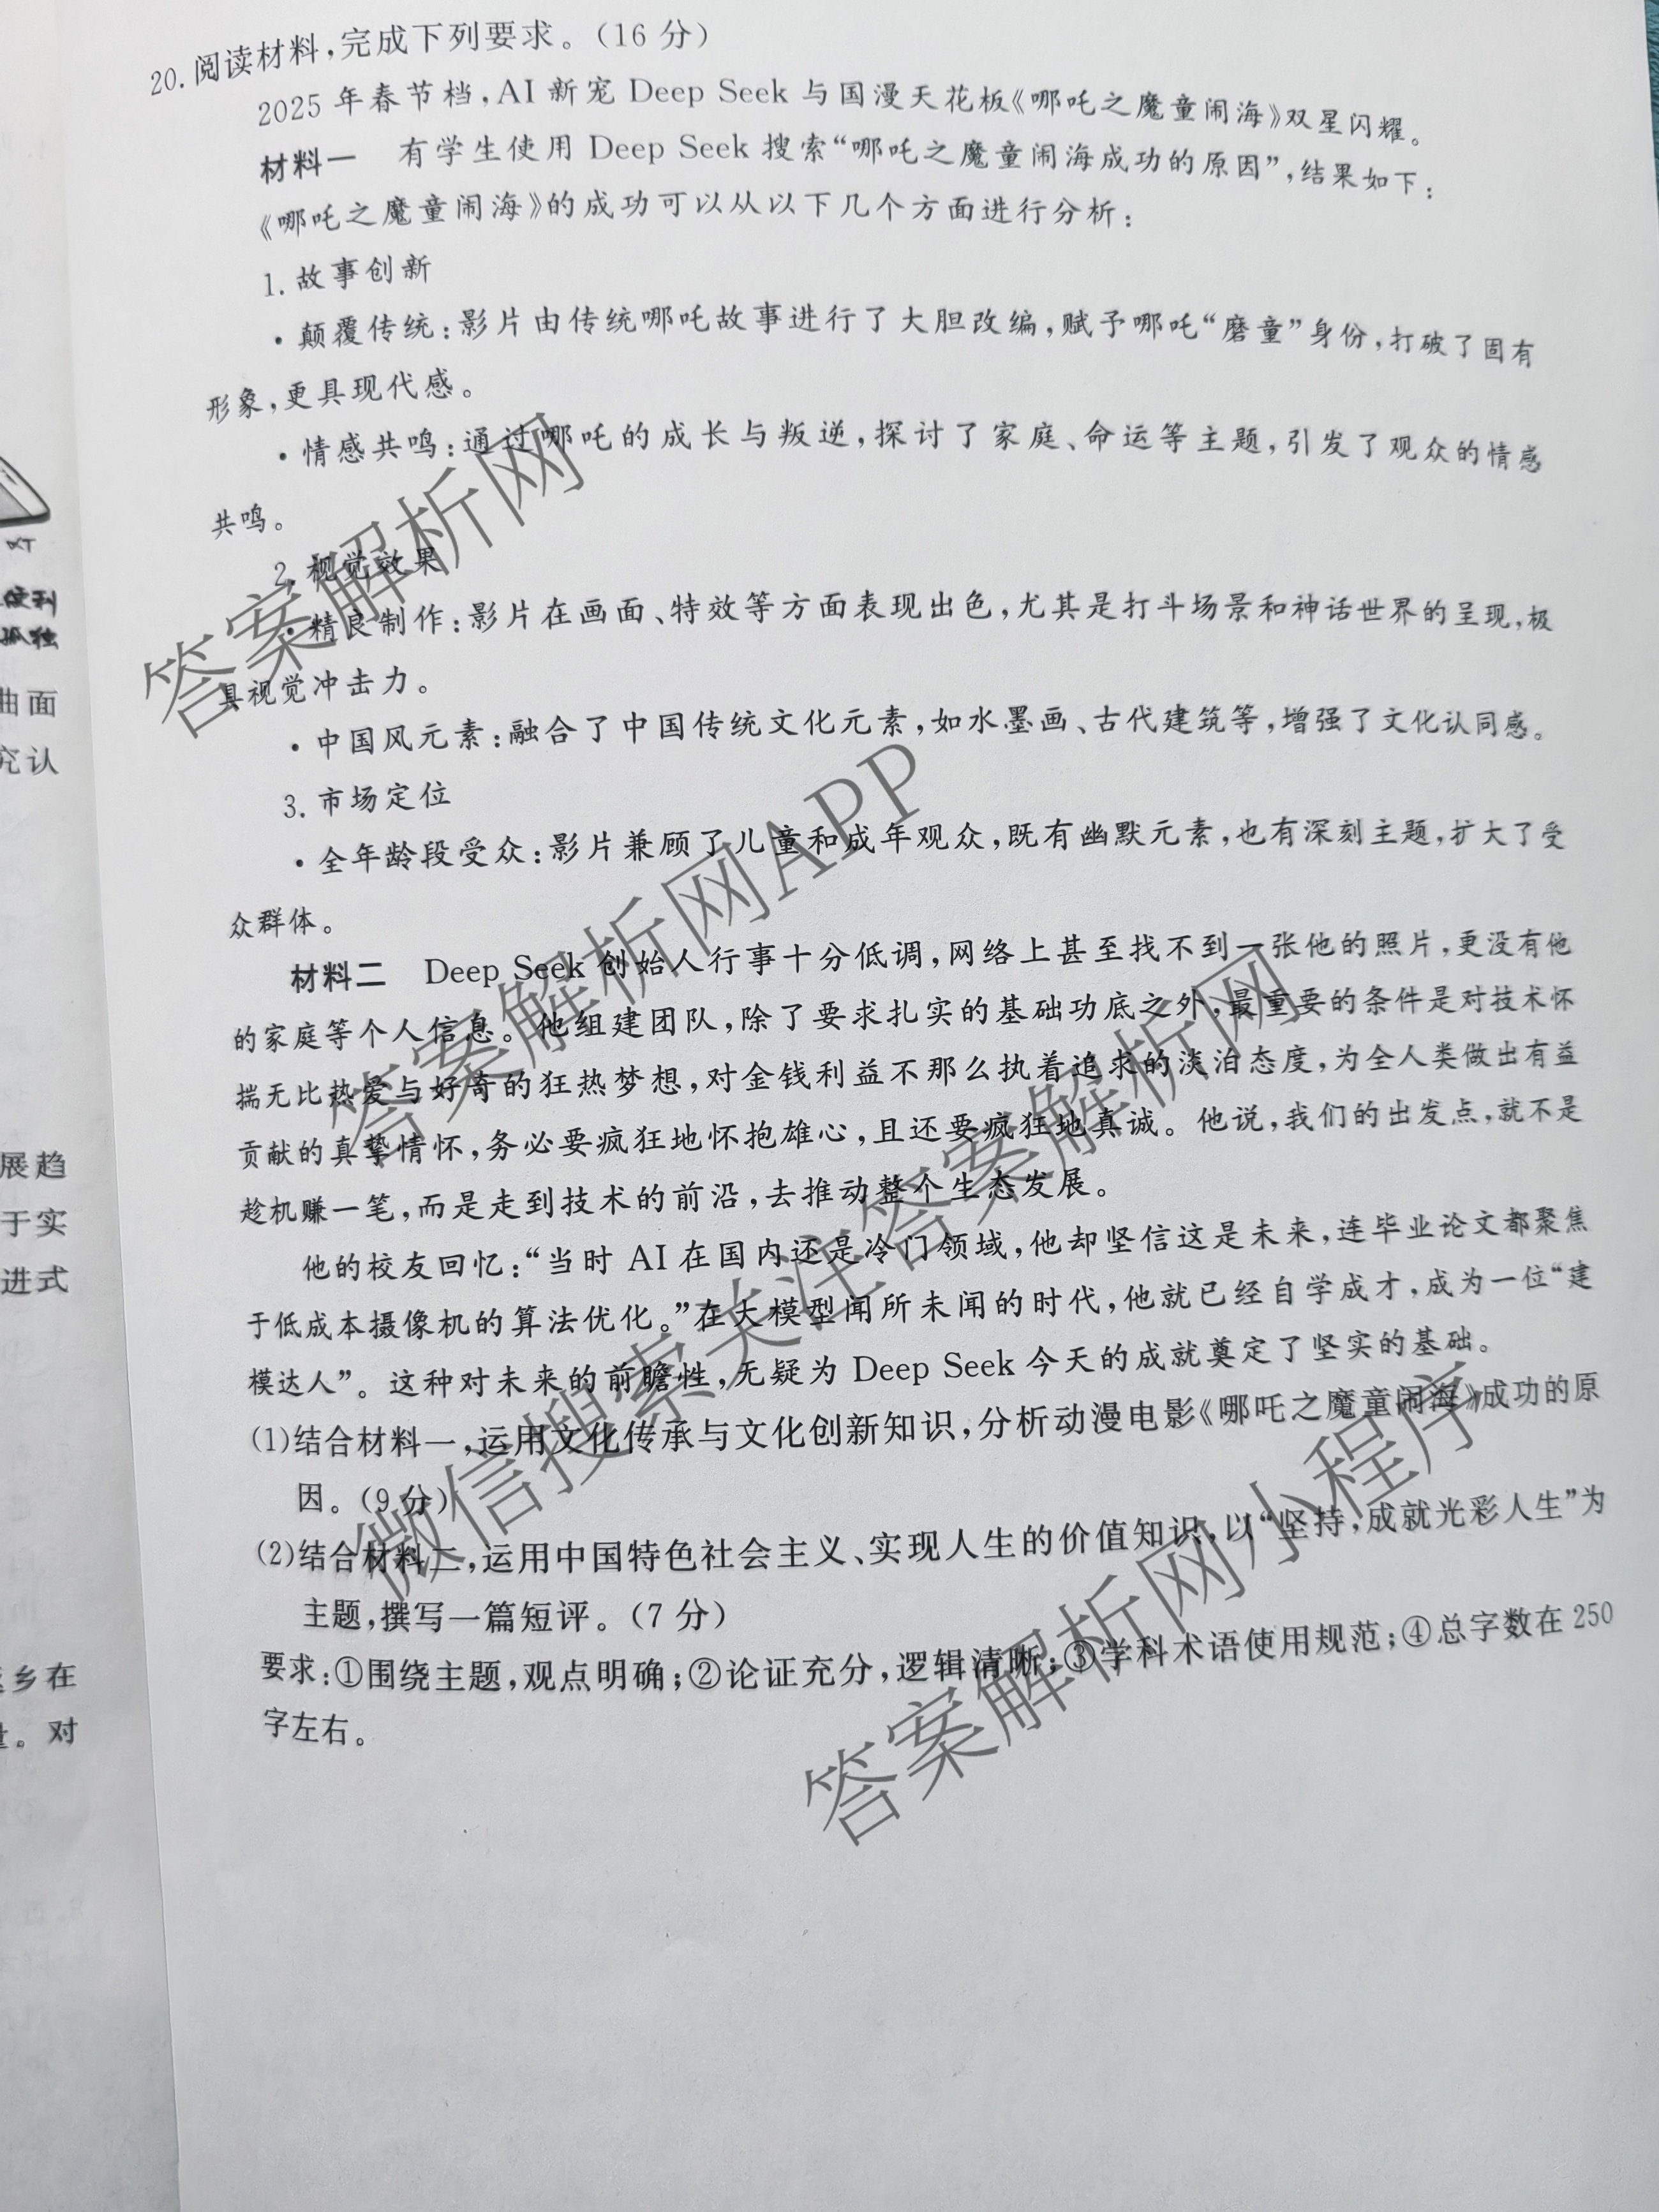 20. 阅读材料,完成下列要求。(16 分)
2025 年春节档,AI 新宠 Deep Seek 与国漫天花板《哪吒之魔童闹海》双星闪耀。
材料一 有学生使用 Deep Seek 搜索“哪吒之魔童闹海成功的原因”,结果如下:
《哪吒之魔童闹海》的成功可以从以下几个方面进行分析:
1. 故事创新
• 颠覆传统:影片由传统哪吒故事进行了大胆改编,赋予哪吒“磨童”身份,打破了固有
形象,更具现代感。
• 情感共鸣:通过哪吒的成长与叛逆,探讨了家庭、命运等主题,引发了观众的情感
共鸣。
2. 视觉效果
• 精良制作:影片在画面、特效等方面表现出色,尤其是打斗场景和神话世界的呈现,极
具视觉冲击力。
• 中国风元素:融合了中国传统文化元素,如水墨画、古代建筑等,增强了文化认同感。
3. 市场定位
• 全年龄段受众:影片兼顾了儿童和成年观众,既有幽默元素,也有深刻主题,扩大了受
众群体。
材料二 Deep Seek 创始人行事十分低调,网络上甚至找不到一张他的照片,更没有他
的家庭等个人信息。他组建团队,除了要求扎实的基础功底之外,最重要的条件是对技术怀
揣无比热爱与好奇的狂热梦想,对金钱利益不那么执着追求的淡泊态度,为全人类做出有益
贡献的真挚情怀,务必要疯狂地怀抱雄心,且还要疯狂地真诚。他说,我们的出发点,就不是
趁机赚一笔,而是走到技术的前沿,去推动整个生态发展。
他的校友回忆:“当时 AI 在国内还是冷门领域,他却坚信这是未来,连毕业论文都聚焦
于低成本摄像机的算法优化。”在大模型闻所未闻的时代,他就已经自学成才,成为一位“建
模达人”。这种对未来的前瞻性,无疑为 Deep Seek 今天的成就奠定了坚实的基础。
(1)结合材料一,运用文化传承与文化创新知识,分析动漫电影《哪吒之魔童闹海》成功的原
因。(9 分)
(2)结合材料二,运用中国特色社会主义、实现人生的价值知识,以“坚持,成就光彩人生”为
主题,撰写一篇短评。(7 分)
要求:①围绕主题,观点明确;②论证充分,逻辑清晰;③学科术语使用规范;④总字数在 250
字左右。
便利
孤独
曲面
究认
展趋
于实
进式
乡在
。对
答案解析网
答案解析网APP
微信搜索关注答案解析网
答案解析网小程序